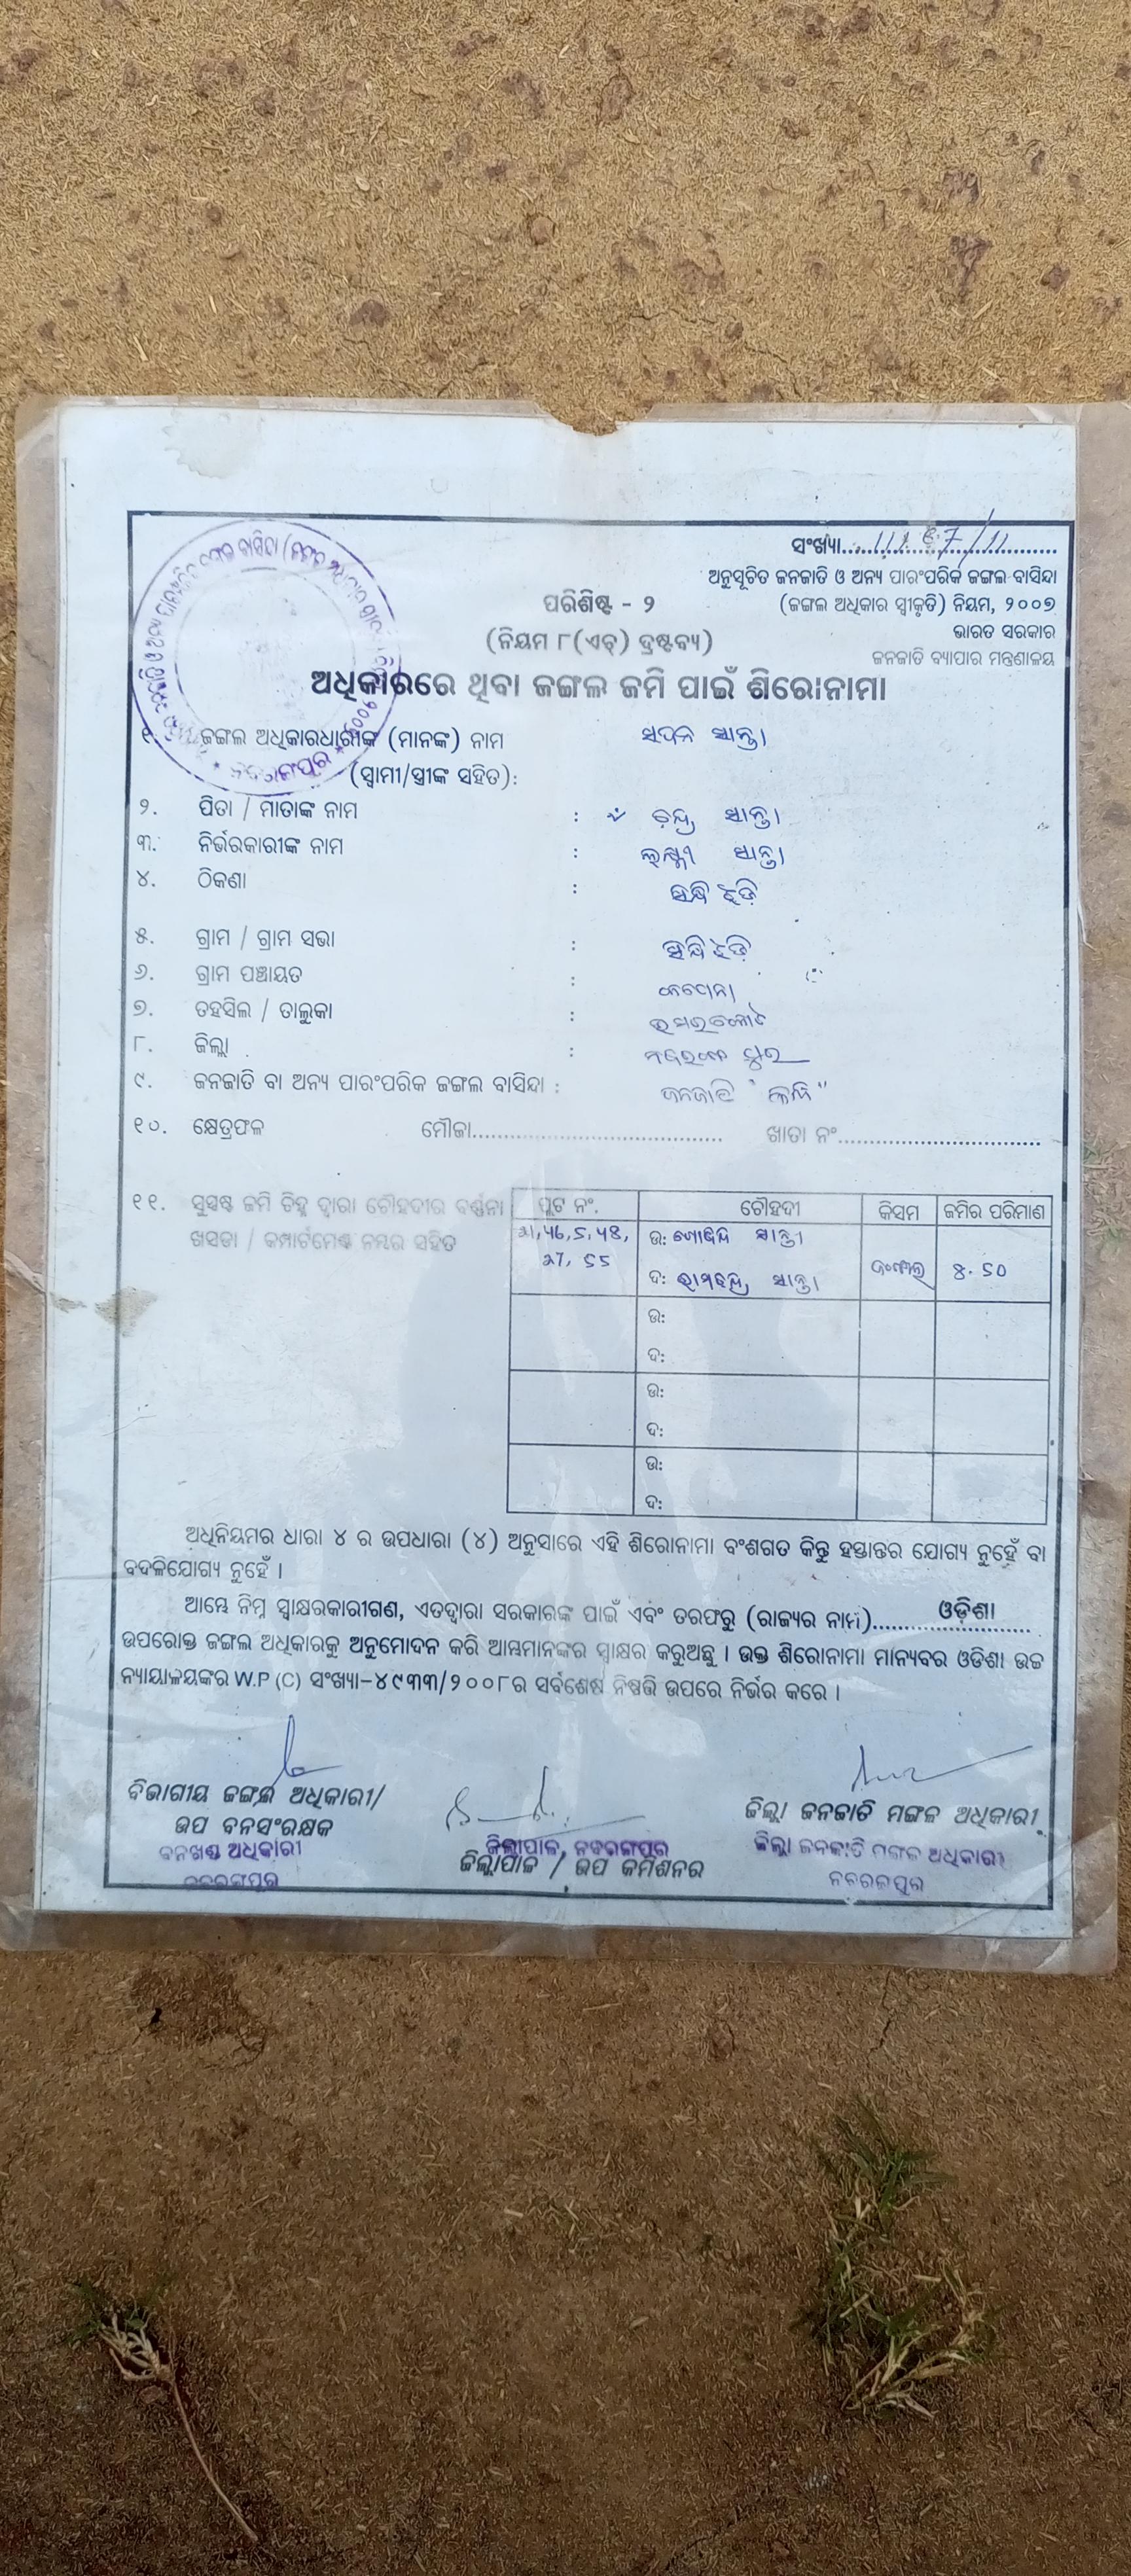 ସଂଖ୍ୟା
ଅନୁସୂଚିତ ଜନଜାତି ଓ ଅନ୍ୟ ପାରଂପରିକ ଜଙ୍ଗଲ ବାସିନ୍ଦା
(ଜଙ୍ଗଲ ଅଧିକାର ସ୍ୱୀକୃତି) ନିୟମ, ୨୦୦୭
ଭାରତ ସରକାର
ଜନଜାତି ବ୍ୟାପାର ମନ୍ତ୍ରଣାଳୟ
ପରିଶିଷ୍ଟ - ୨
(ନିୟମ ୮(ଏଚ୍) ଦ୍ରଷ୍ଟବ୍ୟ)
ଅଧିକାରରେ ଥିବା ଜଙ୍ଗଲ ଜମି ପାଇଁ ଶିରୋନାମା
୧. ଜଙ୍ଗଲ ଅଧିକାରଧାରୀଙ୍କ (ମାନଙ୍କ) ନାମ ସପନ ସାନ୍ତା
(ସ୍ୱାମୀ/ସ୍ତ୍ରୀଙ୍କ ସହିତ):
୨. ପିତା / ମାତାଙ୍କ ନାମ : ଚନ୍ଦ୍ର ସାନ୍ତା
୩. ନିର୍ଭରକାରୀଙ୍କ ନାମ : ଲକ୍ଷ୍ମୀ ସାନ୍ତା
୪. ଠିକଣା :
୫. ଗ୍ରାମ / ଗ୍ରାମ ସଭା :
୬. ଗ୍ରାମ ପଞ୍ଚାୟତ :
୭. ତହସିଲ / ତାଲୁକା : ଉମରକୋଟ
୮. ଜିଲ୍ଲା : ନବରଙ୍ଗପୁର
୯. ଜନଜାତି ବା ଅନ୍ୟ ପାରଂପରିକ ଜଙ୍ଗଲ ବାସିନ୍ଦା : ଜନଜାତି
୧୦. କ୍ଷେତ୍ରଫଳ ମୌଜା ଖାତା ନଂ
୧୧. ସୁସ୍ପଷ୍ଟ ଜମି ଚିହ୍ନ ଦ୍ୱାରା ଚୌହଦୀର ବର୍ଣ୍ଣନା ପ୍ଲଟ ନଂ. ଚୌହଦୀ କିସମ ଜମିର ପରିମାଣ
ଖସଡା / କମ୍ପାର୍ଟମେଣ୍ଟ ନମ୍ବର ସହିତ ଉ: ସାନ୍ତା
ଦ: ରାମଚନ୍ଦ୍ର ସାନ୍ତା ଜଂଗଲ ୪.50
ଉ:
ଦ:
ଉ:
ଦ:
ଉ:
ଦ:
ଅଧିନିୟମର ଧାରା ୪ ର ଉପଧାରା (୪) ଅନୁସାରେ ଏହି ଶିରୋନାମା ବଂଶଗତ କିନ୍ତୁ ହସ୍ତାନ୍ତର ଯୋଗ୍ୟ ନୁହେଁ ବା
ବଦଳିଯୋଗ୍ୟ ନୁହେଁ ।
ଆମ୍ଭେ ନିମ୍ନ ସ୍ୱାକ୍ଷରକାରୀଗଣ, ଏତଦ୍ୱାରା ସରକାରଙ୍କ ପାଇଁ ଏବଂ ତରଫରୁ (ରାଜ୍ୟର ନାମ) ଓଡ଼ିଶା
ଉପରୋକ୍ତ ଜଙ୍ଗଲ ଅଧିକାରକୁ ଅନୁମୋଦନ କରି ଆମ୍ଭମାନଙ୍କର ସ୍ୱାକ୍ଷର କରୁଅଛୁ । ଉକ୍ତ ଶିରୋନାମା ମାନ୍ୟବର ଓଡିଶା ଉଚ୍ଚ
ନ୍ୟାୟାଳୟଙ୍କର W.P (C) ସଂଖ୍ୟା-୪୯୩୩/୨୦୦୮ର ସର୍ବଶେଷ ନିଷ୍ପତ୍ତି ଉପରେ ନିର୍ଭର କରେ ।
ବିଭାଗୀୟ ଜଙ୍ଗଲ ଅଧିକାରୀ/
ଉପ ବନସଂରକ୍ଷକ
ବନଖଣ୍ଡ ଅଧିକାରୀ
ନବରଙ୍ଗପୁର
ଜିଲ୍ଲାପାଳ, ନବରଙ୍ଗପୁର
ଜିଲ୍ଲାପାଳ / ଉପ କମିଶନର
ଜିଲ୍ଲା ଜନଜାତି ମଙ୍ଗଳ ଅଧିକାରୀ
ଜିଲ୍ଲା ଜନଜାତି ମଙ୍ଗଳ ଅଧିକାରୀ
ନବରଙ୍ଗପୁର